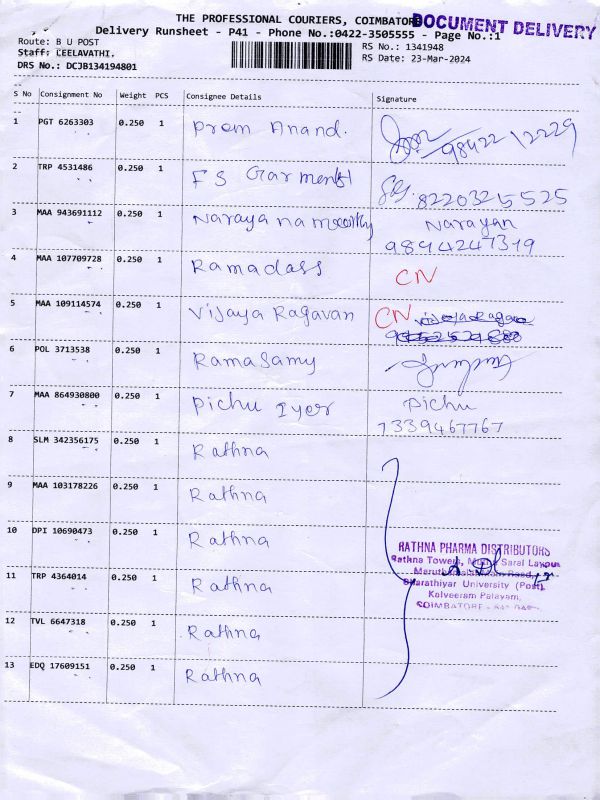 THE PROFESSIONAL COURIERS, COIMBATORE
DOCUMENT DELIVERY
Delivery Runsheet - P41 - Phone No.:0422-3505555 - Page No.:1
Route: B U POST
Staff: CEELAVATHI.
DRS No.: DCJB134194801
RS No.: 1341948
RS Date: 23-Mar-2024
S No Consignment No Weight PCS Consignee Details Signature
1 PGT 6263303 0.250 1 Prem Anand. 98422 12229
2 TRP 4531486 0.250 1 F S Garments 8220325525
3 MAA 943691112 0.250 1 Narayanamoorthy Narayan
9894247319
4 MAA 107709728 0.250 1 Ramadass CN
5 MAA 109114574 0.250 1 Vijaya Ragavan CN
6 POL 3713538 0.250 1 Ramasamy
7 MAA 864930800 0.250 1 Pichu Iyer Pichu
7339467767
8 SLM 342356175 0.250 1 Rathna
9 MAA 103178226 0.250 1 Rathna
10 DPI 10690473 0.250 1 Rathna
11 TRP 4364014 0.250 1 Rathna
12 TVL 6647318 0.250 1 Rathna
13 EDQ 17609151 0.250 1 Rathna
RATHNA PHARMA DISTRIBUTORS
Rathna Towers, Saral Layout
Road,
Bharathiyar University (Post),
Kalveeram Palayam,
COIMBATORE